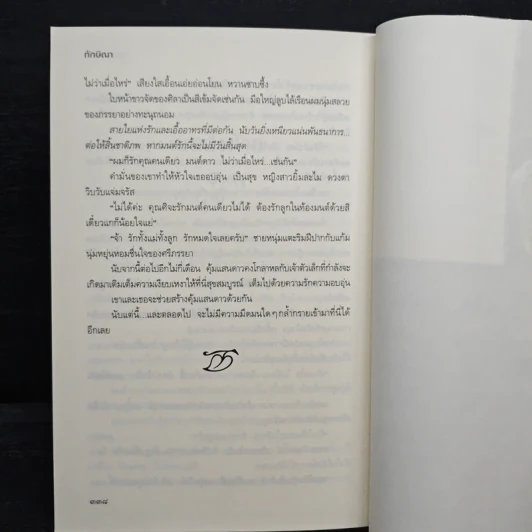 ทักษิณา
ไม่ว่าเมื่อไหร่" เสียงใสเอื้อนเอ่ยอ่อนโยน หวานซาบซึ้ง
ใบหน้าขาวจัดของศิลาเป็นสีเข้มจัดเช่นกัน มือใหญ่ลูบไล้เรือนผมนุ่มสลวย
ของภรรยาอย่างทะนุถนอม
สายใยแห่งรักและเอื้ออาทรที่มีต่อกัน นับวันยิ่งเหนียวแน่นพันธนาการ...
ต่อให้สิ้นชาติภพ หากมนต์รักนี้จะไม่มีวันสิ้นสุด
"ผมก็รักคุณคนเดียว มนต์ดาว ไม่ว่าเมื่อไหร่...เช่นกัน"
คำมั่นของเขาทำให้หัวใจเธออบอุ่น เป็นสุข หญิงสาวยิ้มละไม ดวงตา
วิบวับแจ่มจรัส
"ไม่ได้ค่ะ คุณศิจะรักมนต์คนเดียวไม่ได้ ต้องรักลูกในท้องมนต์ด้วยสิ
เดี๋ยวแกก็น้อยใจแย่"
"จ้า รักทั้งแม่ทั้งลูก รักหมดใจเลยครับ" ชายหนุ่มแตะริมฝีปากกับแก้ม
นุ่มหยุ่นหอมชื่นใจของศรีภรรยา
นับจากนี้ต่อไปอีกไม่กี่เดือน คุ้มแสนดาวคงโกลาหลกับเจ้าตัวเล็กที่กำลังจะ
เกิดมาเติมเต็มความเงียบเหงาให้ที่นี่สุขสมบูรณ์ เต็มไปด้วยความรักความอบอุ่น
เขาและเธอจะช่วยสร้างคุ้มแสนดาวด้วยกัน
นับแต่นี้...และตลอดไป จะไม่มีความมืดมนใดๆ กล้ำกรายเข้ามาที่นี่ได้
อีกเลย
๓๓๘